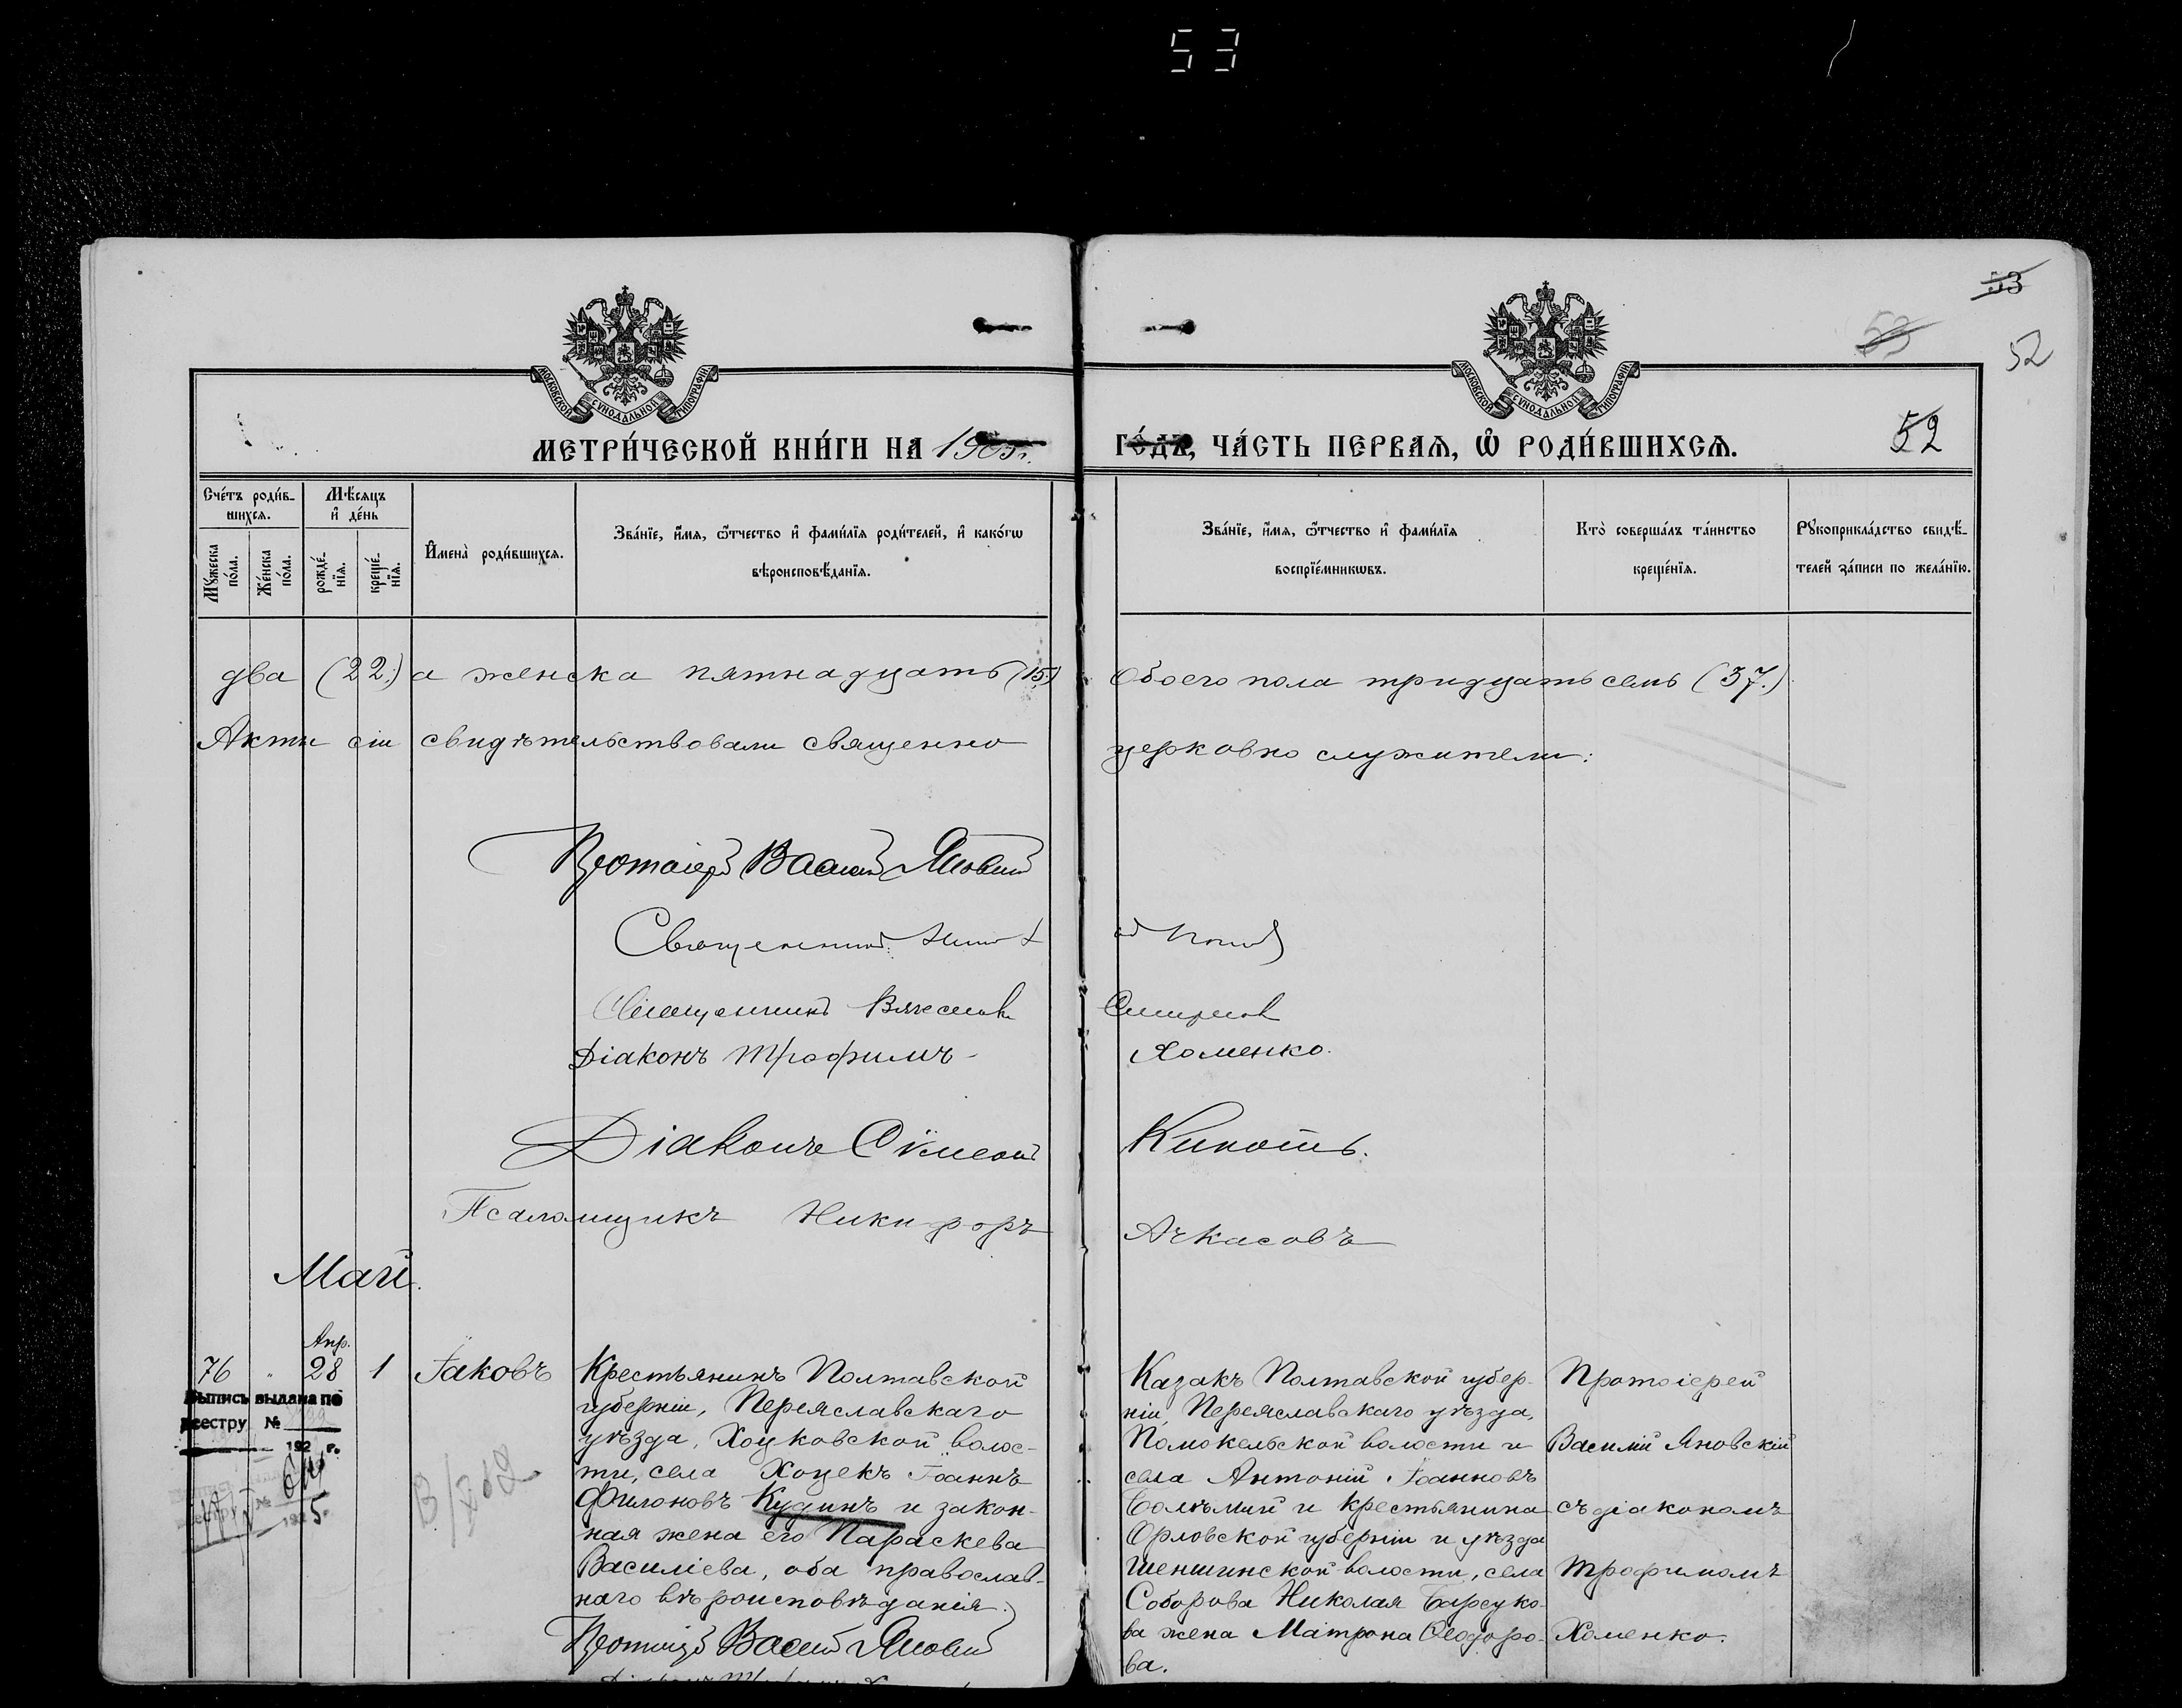 53
53
53
52
52
МОСКОВСКОЙ СѴНОДАЛЬНОЙ ТИПОГРАФІИ
МОСКОВСКОЙ СѴНОДАЛЬНОЙ ТИПОГРАФІИ
МЕТРИ́ЧЕСКОЙ КНИ́ГИ НА 1905 г.
ГО́ДЪ, ЧА́СТЬ ПЕРВАЯ, Ѡ҆ РОДИ́ВШИХСЯ.
Сче́тъ роди́в-
шихся.
Мꙋ́жеска
по́ла.
Же́нска
по́ла.
Мѣ́сяцъ
и҆ де́нь
рожде́-
нїя.
креще́-
нїя.
И҆мена̀ роди́вшихся.
Зва́нїе, и҆́мя, ѻ҆́тчество и҆ фами́лїя роди́телей, и҆ како́гѡ
вѣроисповѣ́данїя.
Зва́нїе, и҆́мя, ѻ҆́тчество и҆ фами́лїя
воспрїе́мникѡвъ.
Кто̀ соверша́лъ та́инство
креще́нїя.
Рꙋкоприкла́дство свидѣ́-
телей за́писи по жела́нїю.
два (22.) а женска пятнадцать (15.) Обоего пола тридцать семь (37.)
Акты сіи свидѣтельствовали священно церковно служители:
Протоіерей Василій Яновскій
Священникъ
Священникъ Вячеславъ Смирнов
Діаконъ Трофимъ Хоменко.
Діаконъ Сѵмеонъ Кипоть.
Псаломщикъ Никифоръ Ачкасовъ
Май.
Апр.
76 " 28 1 Іаковъ
Выпись выдана по
реестру №
192 г.
192 5 г.
Крестьянинъ Полтавской
губерніи, Переяславскаго
уѣзда, Хоцковской волос-
ти, села Хоцекъ Іоаннъ
Филоновъ Кудинъ и закон-
ная жена его Параскева
Василіева, оба православ-
наго вѣроисповѣданія.
Протоіерей Василій Яновскій
Казакъ Полтавской губер-
ніи, Переяславскаго уѣзда,
Помокельской волости и
села Антоній Іоанновъ
и крестьянина
Орловской губерніи и уѣзда
Шеншинской волости, села
Соборова Николая Барсуко-
ва жена Матрона Ѳеодоро-
ва.
Протоіерей
Василій Яновскій
съ діакономъ
Трофимомъ
Хоменко.